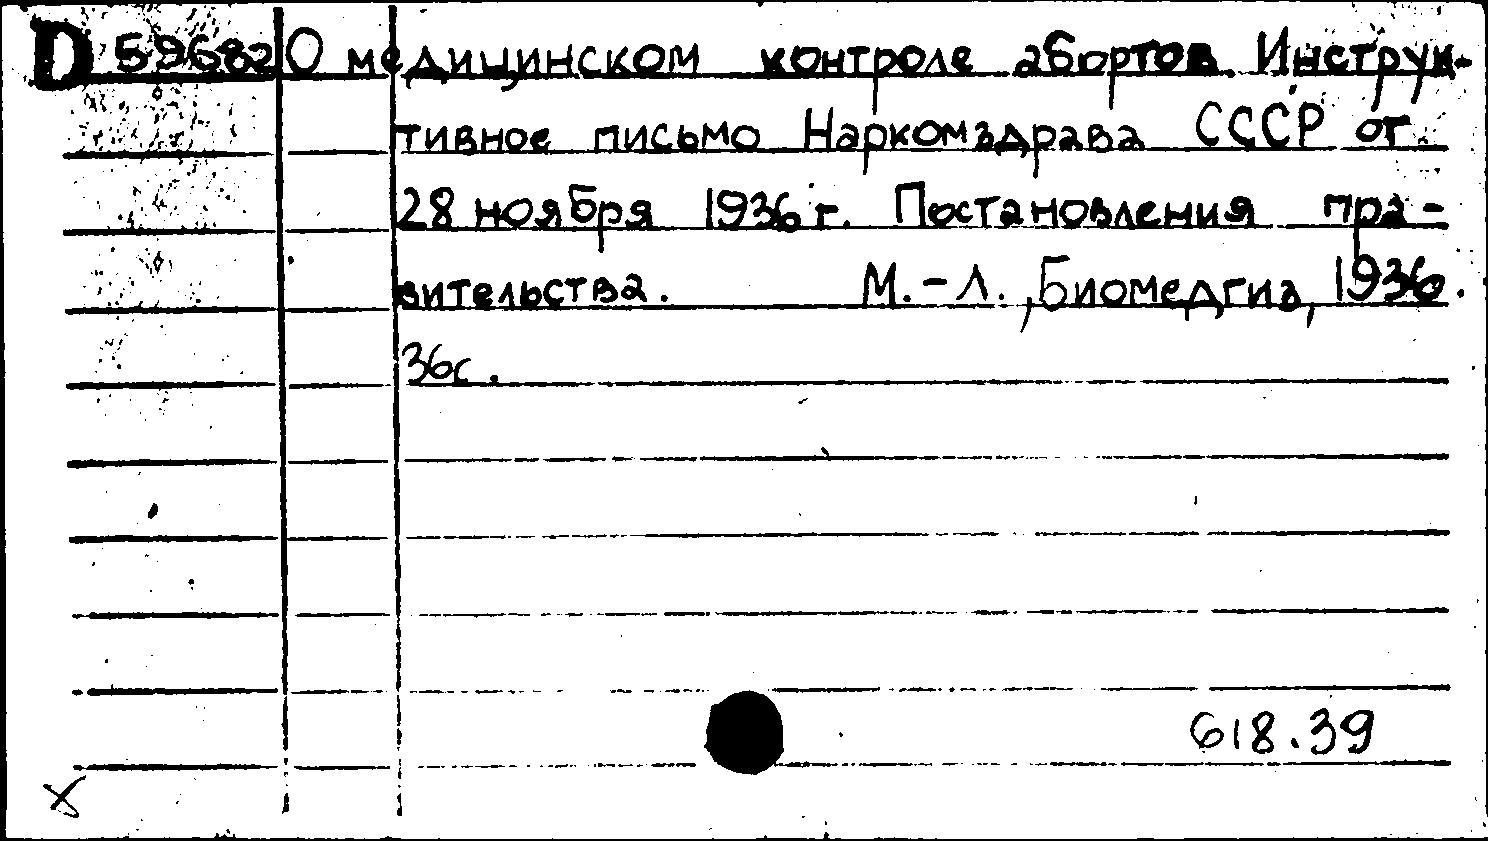 D 59682 О медицинском контроле абортов. Инструк-
тивное письмо Наркомздрава СССР от
28 ноября 1936 г. Постановления пра-
вительства. М.-Л., Биомедгиз, 1936.
36с.
618.39